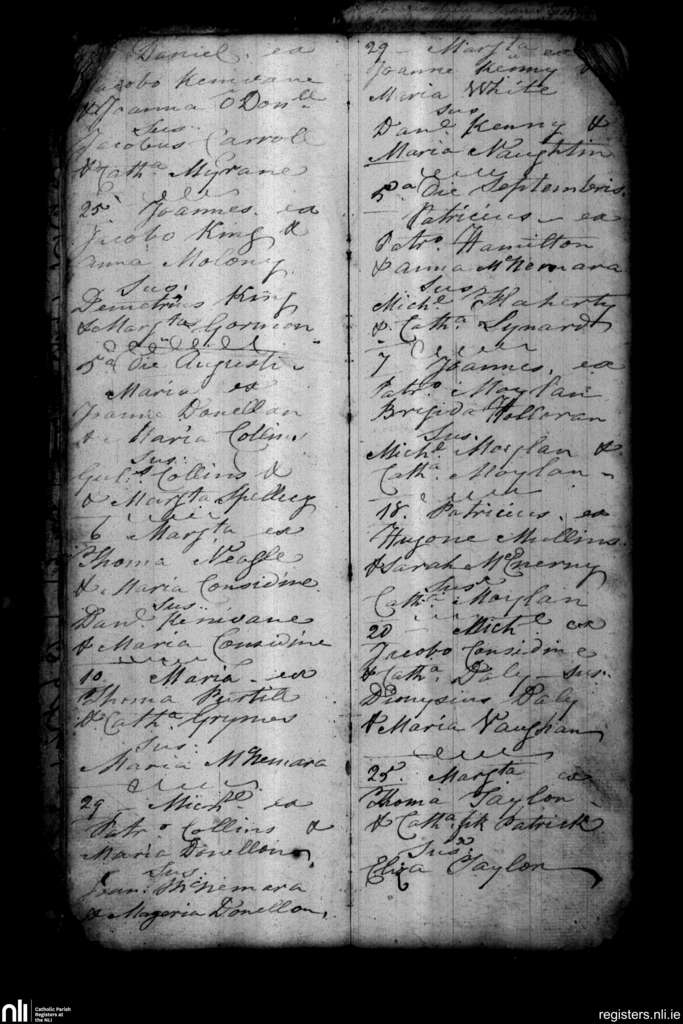 Daniel. ex
Jacobo Kenivane
& Joanna O Donll
Sus:
Jacobus Carroll
& Catha Myrane
25 Joannes. ex
Jacobo King &
Anna Molony.
Sus:
Demetrius King
& Margtas Gormon
5a Die Augusti
Maria ex
Joanne Donellan
& Maria Collins
Sus:
Guls Collins &
& Margta Spellicy
6 Margta ex
Thoma Neagle
& Maria Considine.
Sus:
Danl Kenivane
& Maria Considine
10. Maria. ex
Thoma Purtill
& Catha Grymes
Sus:
Maria McNemara
29 - Michl ex
Patro Collins &
Maria Donellon
Sus:
Joan: McNemara
& Mageria Donellon,
29 - Margta ex
Joanne Kenny &
Maria White
Sus
Danl Kenny &
Maria Naughtin
5a Die Septembris.
Patricius - ex
Patro Hamilton
& Anna McNemara
Sus
Michl Flaharty
& Catha Lynard
7 Joannes, ex
Patro Moylan
Brigida Holloran
Sus:
Michl Moylan &
Catha Moylan -
18. Patricius, ex
Hugone Mullins.
& Sarah McEnerny
Sus
Catha Moylan
20 - Michl ex
Jacobo Considine
& Catha Daly - Sus:
Dionysius Daly
& Maria Vaughan
25. Margta ex
Thoma Taylon -
& Catha fitk Patrick
Sus:
Eliza Taylon
nli
Catholic Parish
Registers at
the NLI
registers.nli.ie